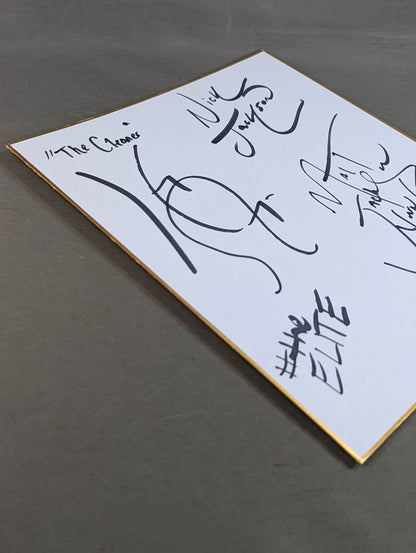 "The Cleaner"
Nick
Jackson
Matt
Jackson
#the
ELITE